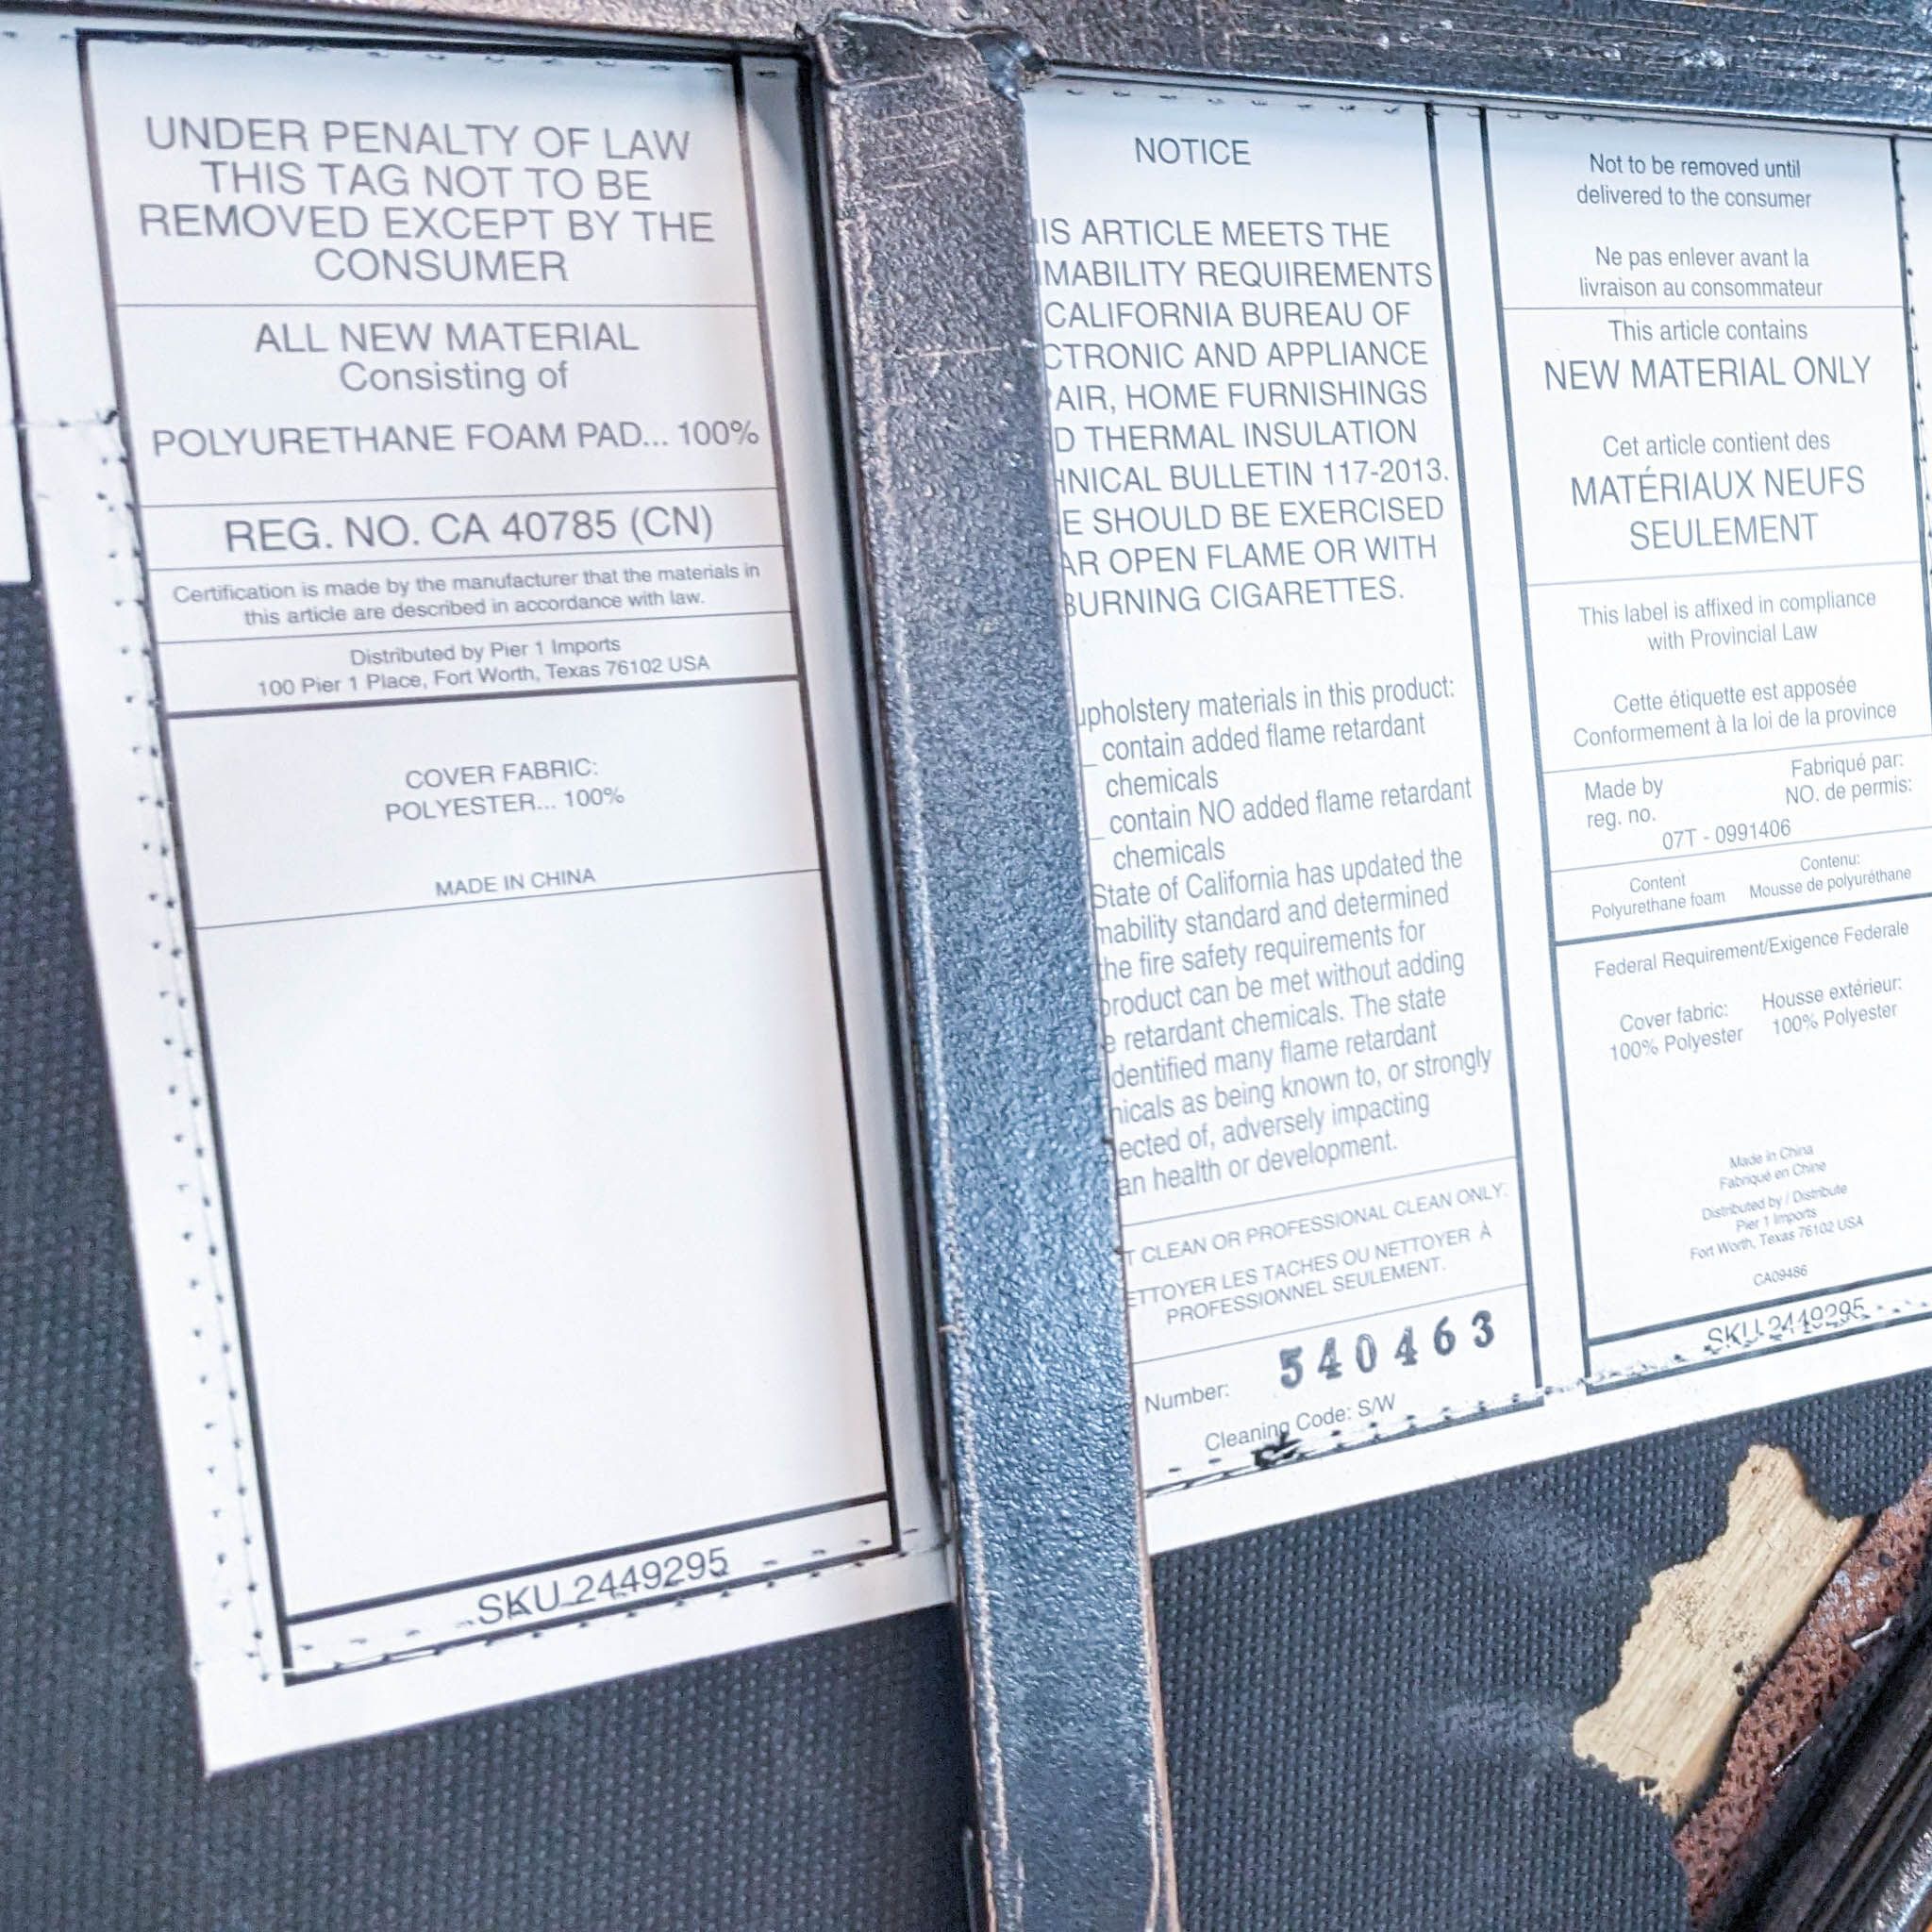 UNDER PENALTY OF LAW
THIS TAG NOT TO BE
REMOVED EXCEPT BY THE
CONSUMER
ALL NEW MATERIAL
Consisting of
POLYURETHANE FOAM PAD... 100%
REG. NO. CA 40785 (CN)
Certification is made by the manufacturer that the materials in
this article are described in accordance with law.
Distributed by Pier 1 Imports
100 Pier 1 Place, Fort Worth, Texas 76102 USA
COVER FABRIC:
POLYESTER... 100%
MADE IN CHINA
SKU 2449295
NOTICE
IS ARTICLE MEETS THE
MABILITY REQUIREMENTS
CALIFORNIA BUREAU OF
CTRONIC AND APPLIANCE
AIR, HOME FURNISHINGS
D THERMAL INSULATION
HNICAL BULLETIN 117-2013.
E SHOULD BE EXERCISED
AR OPEN FLAME OR WITH
BURNING CIGARETTES.
upholstery materials in this product:
_ contain added flame retardant
chemicals
_ contain NO added flame retardant
chemicals
State of California has updated the
mability standard and determined
the fire safety requirements for
product can be met without adding
e retardant chemicals. The state
identified many flame retardant
nicals as being known to, or strongly
ected of, adversely impacting
an health or development.
T CLEAN OR PROFESSIONAL CLEAN ONLY.
ETTOYER LES TACHES OU NETTOYER À
PROFESSIONNEL SEULEMENT.
Number: 540463
Cleaning Code: S/W
Not to be removed until
delivered to the consumer
Ne pas enlever avant la
livraison au consommateur
This article contains
NEW MATERIAL ONLY
Cet article contient des
MATÉRIAUX NEUFS
SEULEMENT
This label is affixed in compliance
with Provincial Law
Cette étiquette est apposée
Conformement à la loi de la province
Made by Fabriqué par:
reg. no. NO. de permis:
07T - 0991406
Content Contenu:
Polyurethane foam Mousse de polyuréthane
Federal Requirement/Exigence Federale
Cover fabric: Housse extérieur:
100% Polyester 100% Polyester
Made in China
Fabriqué en Chine
Distributed by / Distribute
Pier 1 Imports
Fort Worth, Texas 76102 USA
CA09486
SKU 2449295